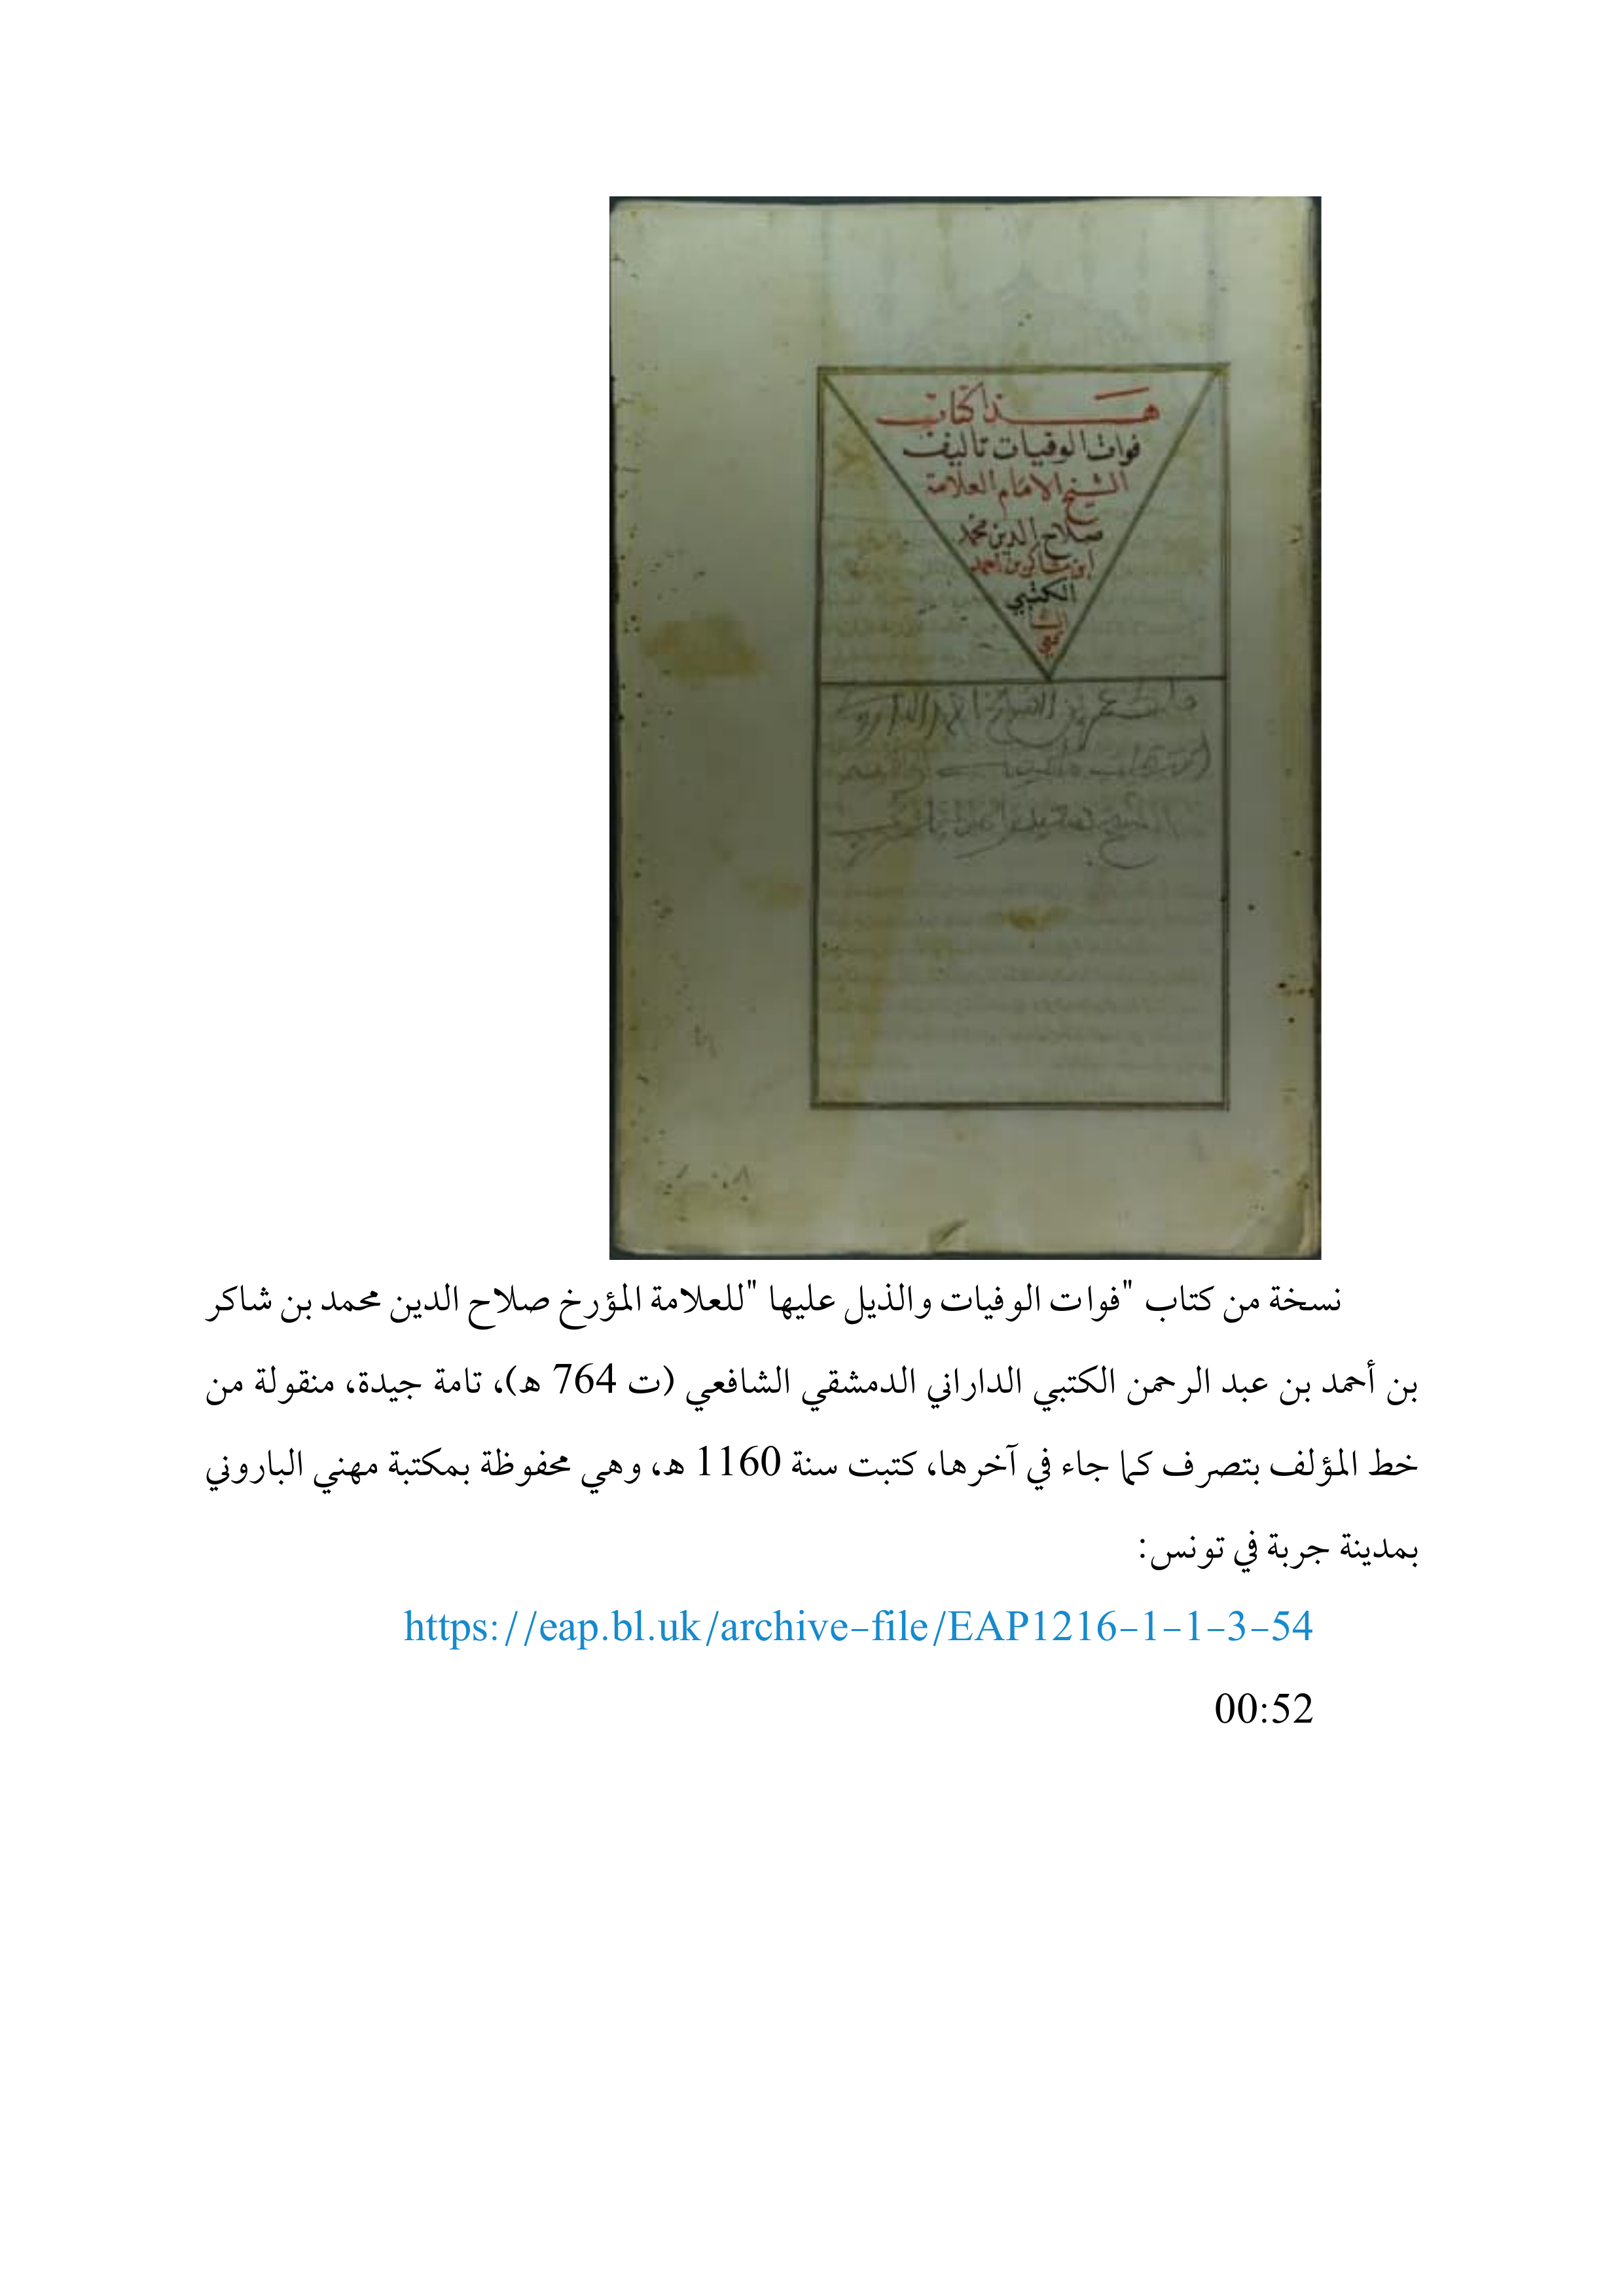 هذا كتاب
فوات الوفيات تاليف
الشيخ الامام العلامة
صلاح الدين محمد
ابن شاكر بن احمد
الكتبي
الشا
فعي
نسخة من كتاب "فوات الوفيات والذيل عليها "للعلامة المؤرخ صلاح الدين محمد بن شاكر
بن أحمد بن عبد الرحمن الكتبي الداراني الدمشقي الشافعي (ت 764 هـ)، تامة جيدة، منقولة من
خط المؤلف بتصرف كما جاء في آخرها، كتبت سنة 1160 هـ، وهي محفوظة بمكتبة مهني الباروني
بمدينة جربة في تونس:
https://eap.bl.uk/archive-file/EAP1216-1-1-3-54
00:52